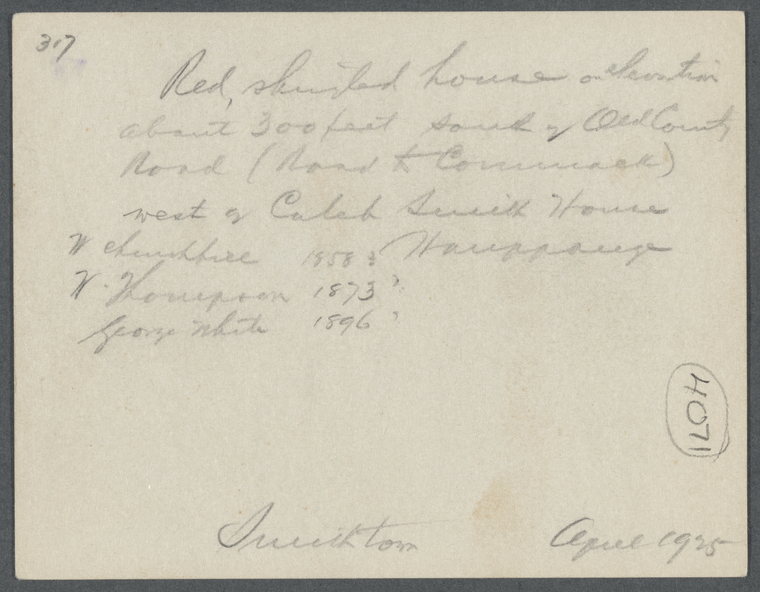 317
Red, shingled house on elevation
about 300 feet south of Old County
Road (Road to Commack)
west of Caleb Smith House
Hauppauge
W Churchill 1858 ?
W. Thompson 1873 ?
George White 1896 ?
HOL
Smithtown April 1925